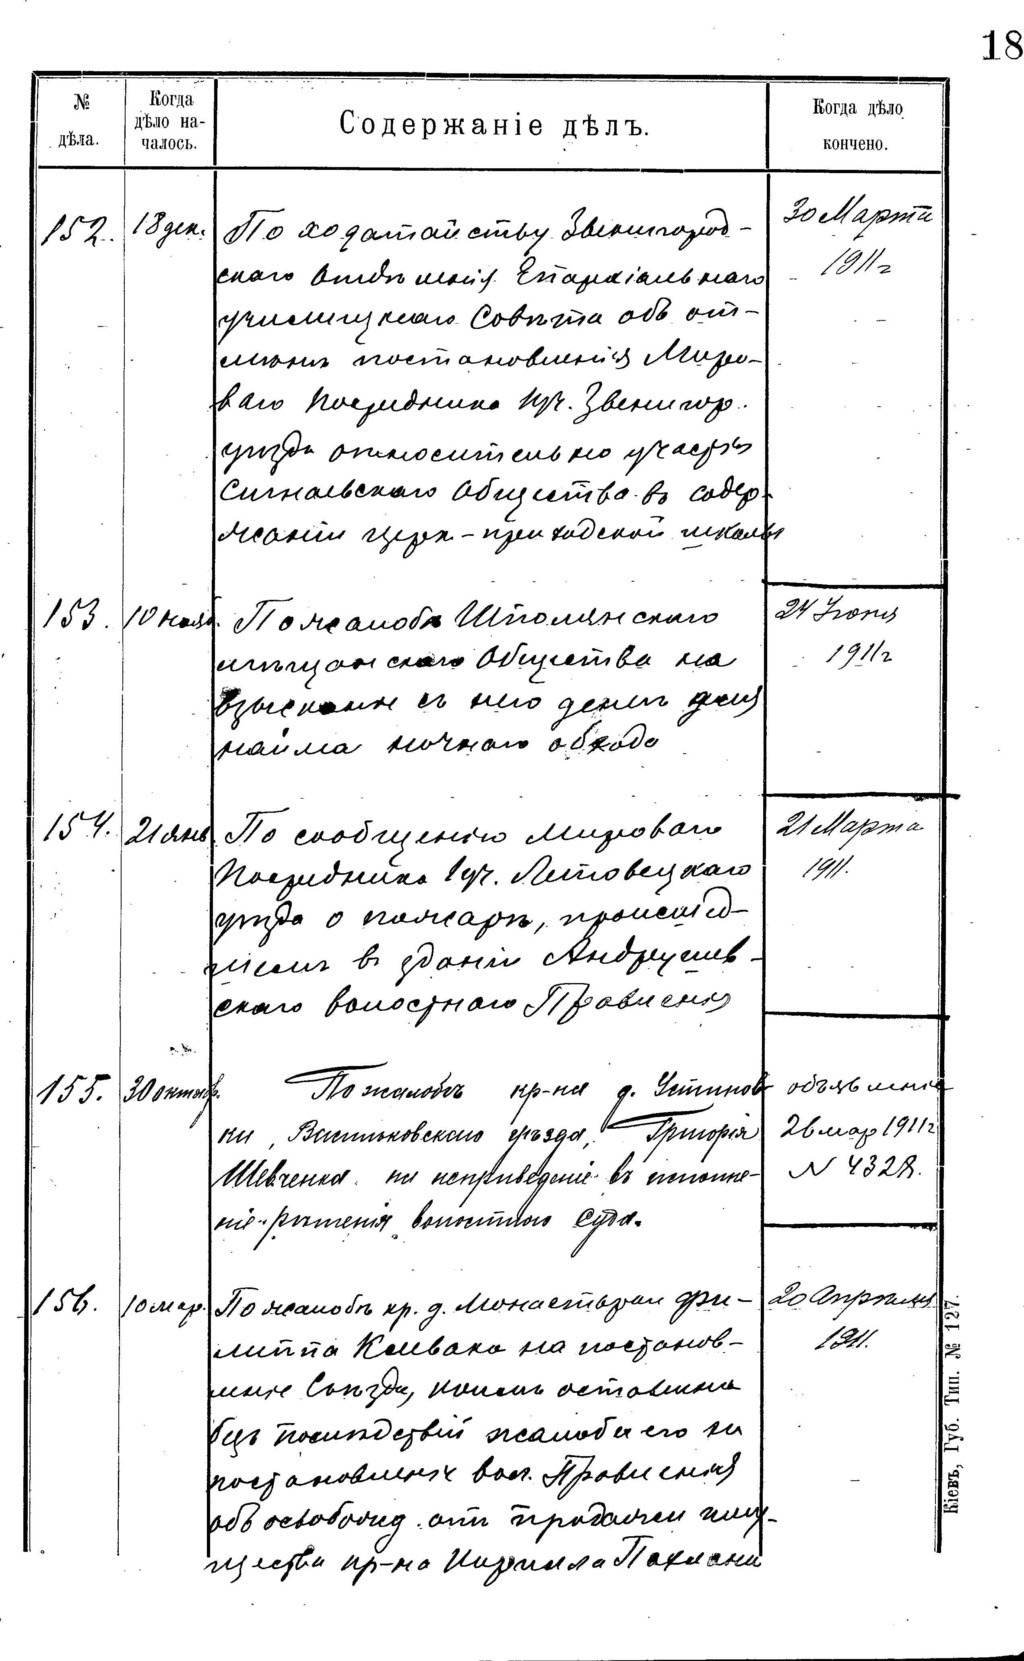 18
№ дѣла.
Когда дѣло на-
чалось.
Содержаніе дѣлъ.
Когда дѣло
кончено.
152. 18 дек. По ходатайству Звенигород-
скаго Отдѣленія Епархіальнаго
училищнаго Совѣта объ от-
мѣнѣ постановленія Миро-
ваго Посредника уч. Звенигор.
уѣзда относительно участія
Сигнаевскаго Общества въ содер-
жаніи церк-приходской школы
30 Марта
1911 г
153. 10 нояб. По жалобѣ Шполянскаго
мѣщанскаго Общества на
взысканіе съ него денегъ для
найма ночнаго обхода
24 Іюня
1911 г
154. 21 янв По сообщенію Мироваго
Посредника 1 уч. Липовецкаго
уѣзда о пожарѣ, происшед-
шемъ въ зданіи Андрушев-
скаго волостнаго Правленія
21 Марта
1911.
155. 30 октяб. По жалобѣ кр-на д. Устинов-
ки, Васильковскаго уѣзда, Григорія
Шевченка на неприведеніе въ исполне-
ніе рѣшенія волостного суда.
объявленіе
26 мар 1911 г
N 4328.
156. 10 мар. По жалобѣ кр. д. Монастырки Фи-
липпа Коивака на постанов-
леніе Съѣзда, коимъ оставлена
безъ послѣдствій жалоба его на
постановленіе вол. Правленія
объ освобожд. отъ продажи иму-
щества кр-на Кирилла
20 Апрѣля
1911.
Кіевъ, Губ. Тип. № 127.